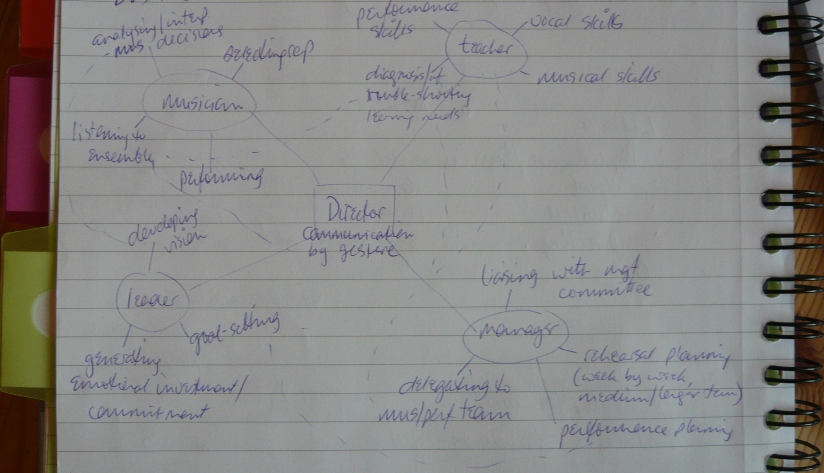 analysing/interp
mus decisions
selecting rep
musician
listening to
ensemble
performing
performance
skills
vocal skills
teacher
musical skills
diagnosis/of
trouble-shooting
learning needs
Director
communication
by gesture
developing
vision
leader
goal-setting
generating
emotional investment/
commitment
liaising with mgt
committee
manager
rehearsal planning
(week by week,
medium/longer term)
delegating to
mus/perf team
performance planning